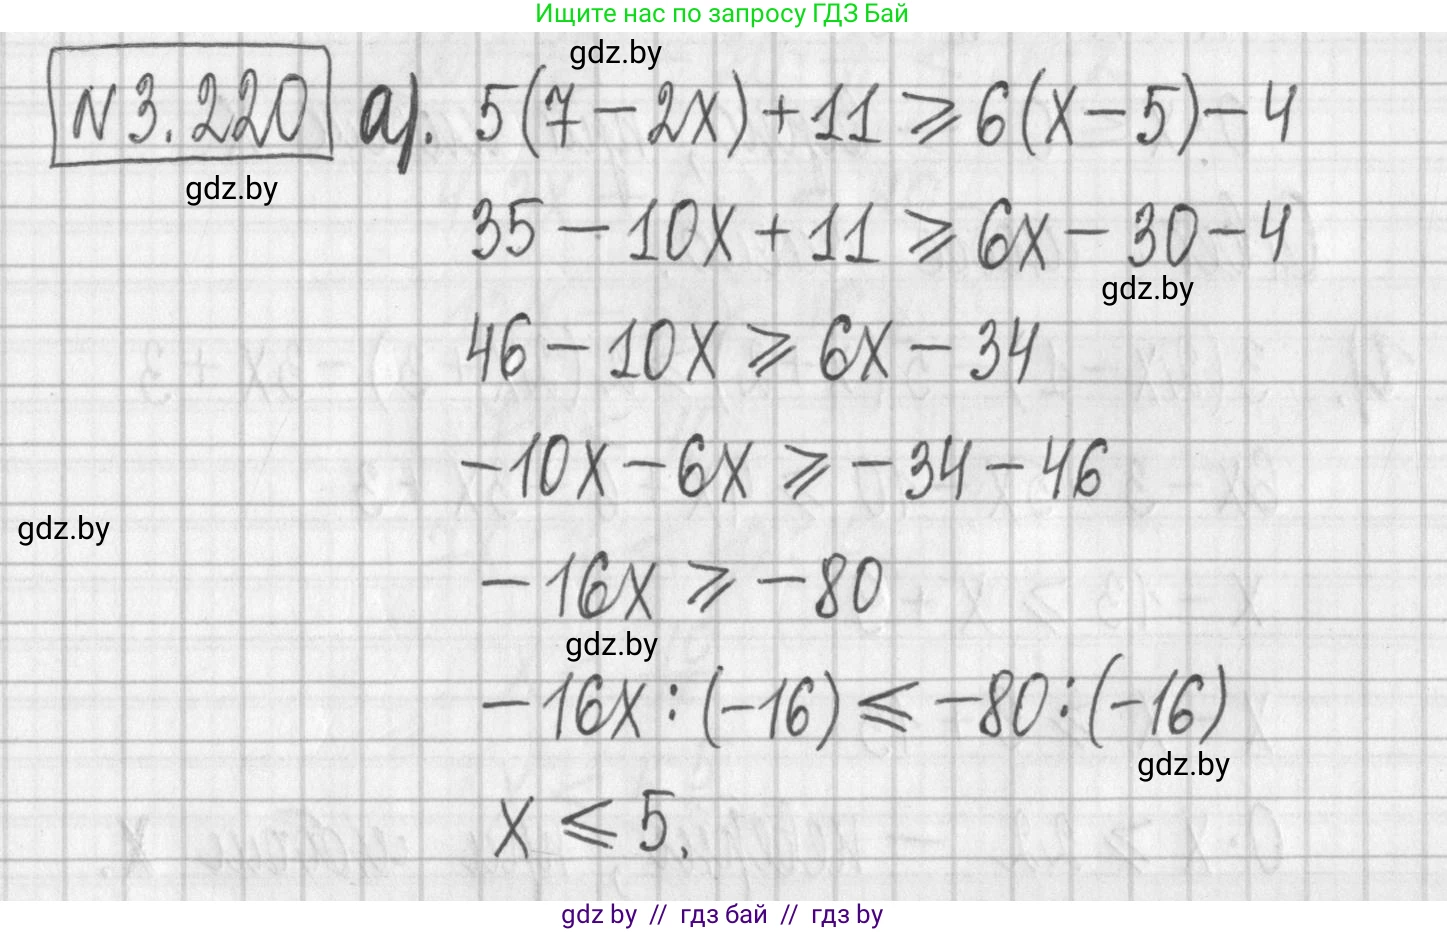 Ищите нас по запросу ГДЗ Бай
gdz.by
N 3.220 а). 5(7-2x)+11 ⩾ 6(x-5)-4
gdz.by
35-10x+11 ⩾ 6x-30-4
gdz.by
46-10x ⩾ 6x-34
-10x-6x ⩾ -34-46
gdz.by
-16x ⩾ -80
gdz.by
-16x:(-16) ⩽ -80:(-16)
gdz.by
x ⩽ 5.
gdz by // гдз бай // гдз by